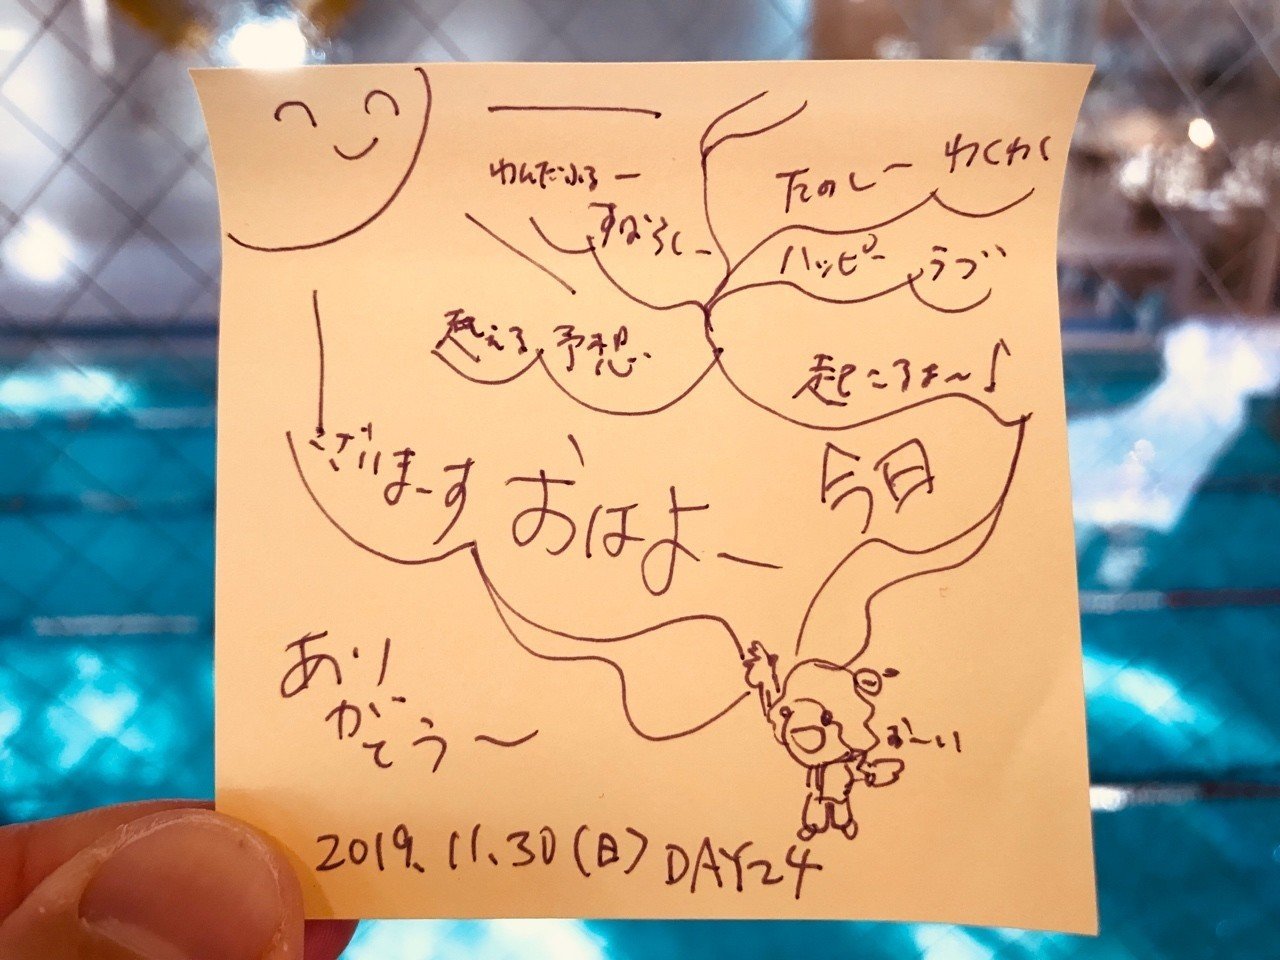 わんだふるー
すばらしー
たのしー わくわく
ハッピー ラブ
超える 予想
起こるよ〜♪
今日
おはよー
ございまーす
ありがとう〜
おーい
2019.11.30(日) DAY24